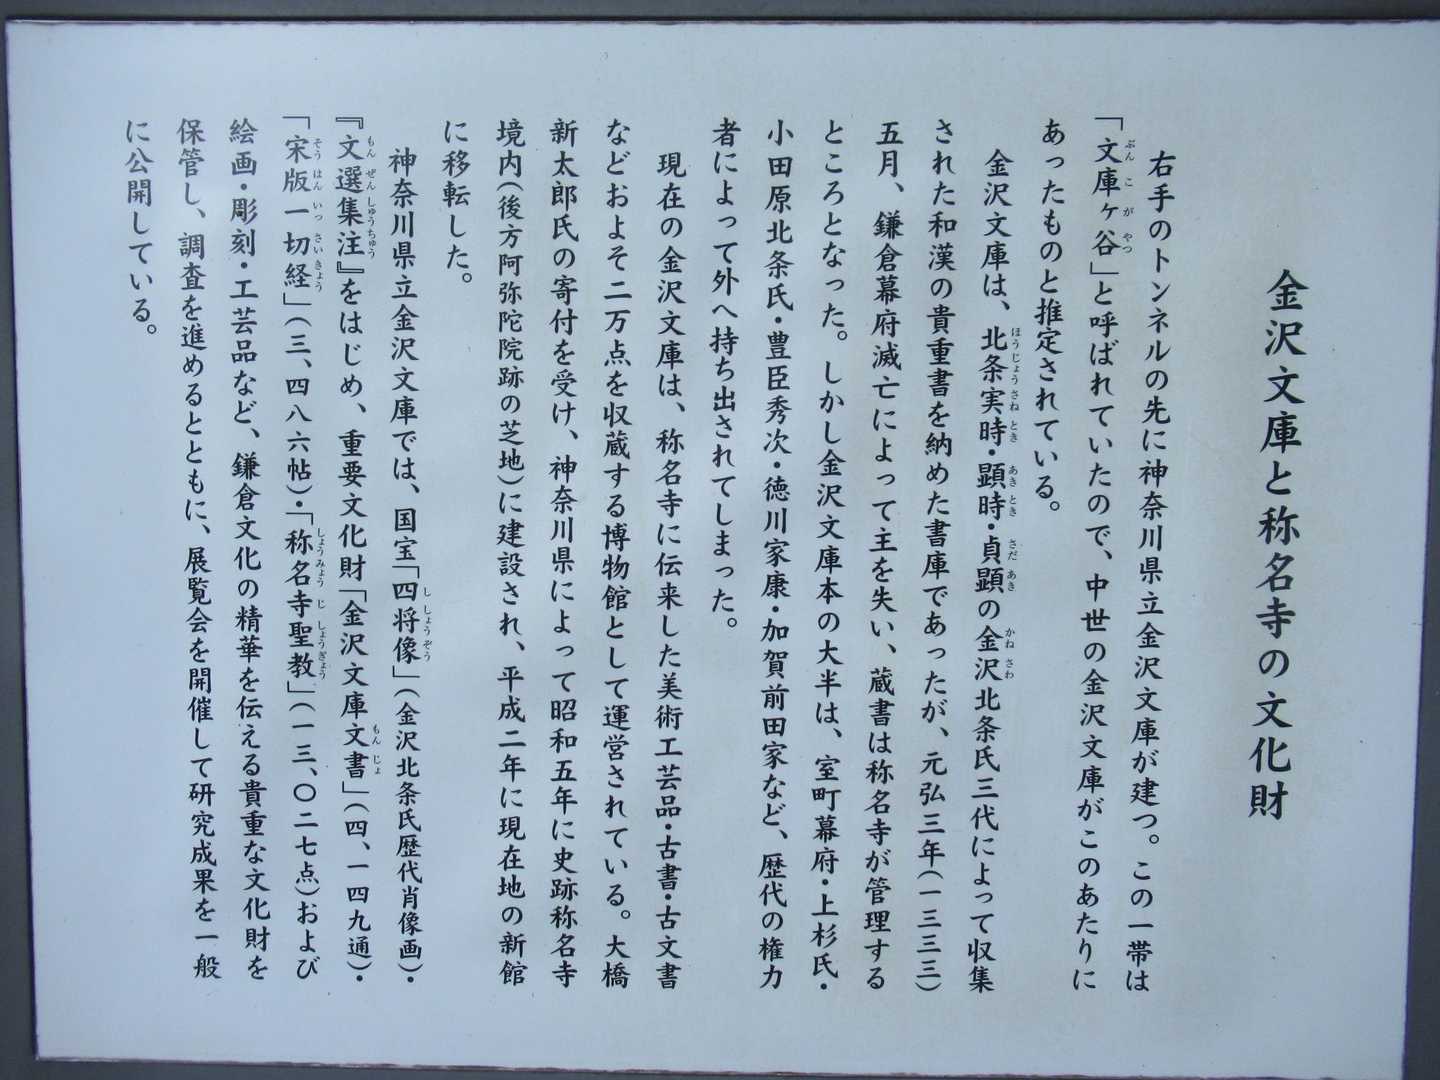 金沢文庫と称名寺の文化財
右手のトンネルの先に神奈川県立金沢文庫が建つ。この一帯は
「文庫ヶ谷」と呼ばれていたので、中世の金沢文庫がこのあたりに
あったものと推定されている。
金沢文庫は、北条実時・顕時・貞顕の金沢北条氏三代によって収集
された和漢の貴重書を納めた書庫であったが、元弘三年(一三三三)
五月、鎌倉幕府滅亡によって主を失い、蔵書は称名寺が管理する
ところとなった。しかし金沢文庫本の大半は、室町幕府・上杉氏・
小田原北条氏・豊臣秀次・徳川家康・加賀前田家など、歴代の権力
者によって外へ持ち出されてしまった。
現在の金沢文庫は、称名寺に伝来した美術工芸品・古書・古文書
などおよそ二万点を収蔵する博物館として運営されている。大橋
新太郎氏の寄付を受け、神奈川県によって昭和五年に史跡称名寺
境内(後方阿弥陀院跡の芝地)に建設され、平成二年に現在地の新館
に移転した。
神奈川県立金沢文庫では、国宝「四将像」(金沢北条氏歴代肖像画)・
『文選集注』をはじめ、重要文化財「金沢文庫文書」(四、一四九通)・
「宋版一切経」(三、四八六帖)・「称名寺聖教」(一三、〇二七点)および
絵画・彫刻・工芸品など、鎌倉文化の精華を伝える貴重な文化財を
保管し、調査を進めるとともに、展覧会を開催して研究成果を一般
に公開している。